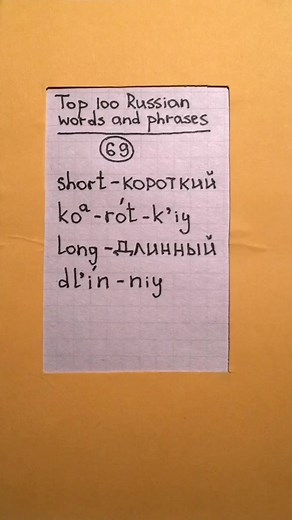 Top 100 Russian
words and phrases
69
short - короткий
koᵃ-ро́t-k'iy
Long - длинный
dl'ín-niy